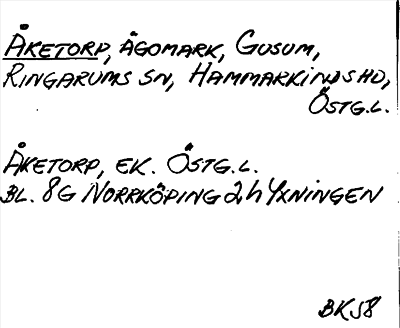 ÅKETORP, ÄGOMARK, GUSUM,
RINGARUMS SN, HAMMARKINDS HD,
ÖSTG.L.
ÅKETORP, EK. ÖSTG.L.
BL. 8G NORRKÖPING 2h YXNINGEN
BKS8